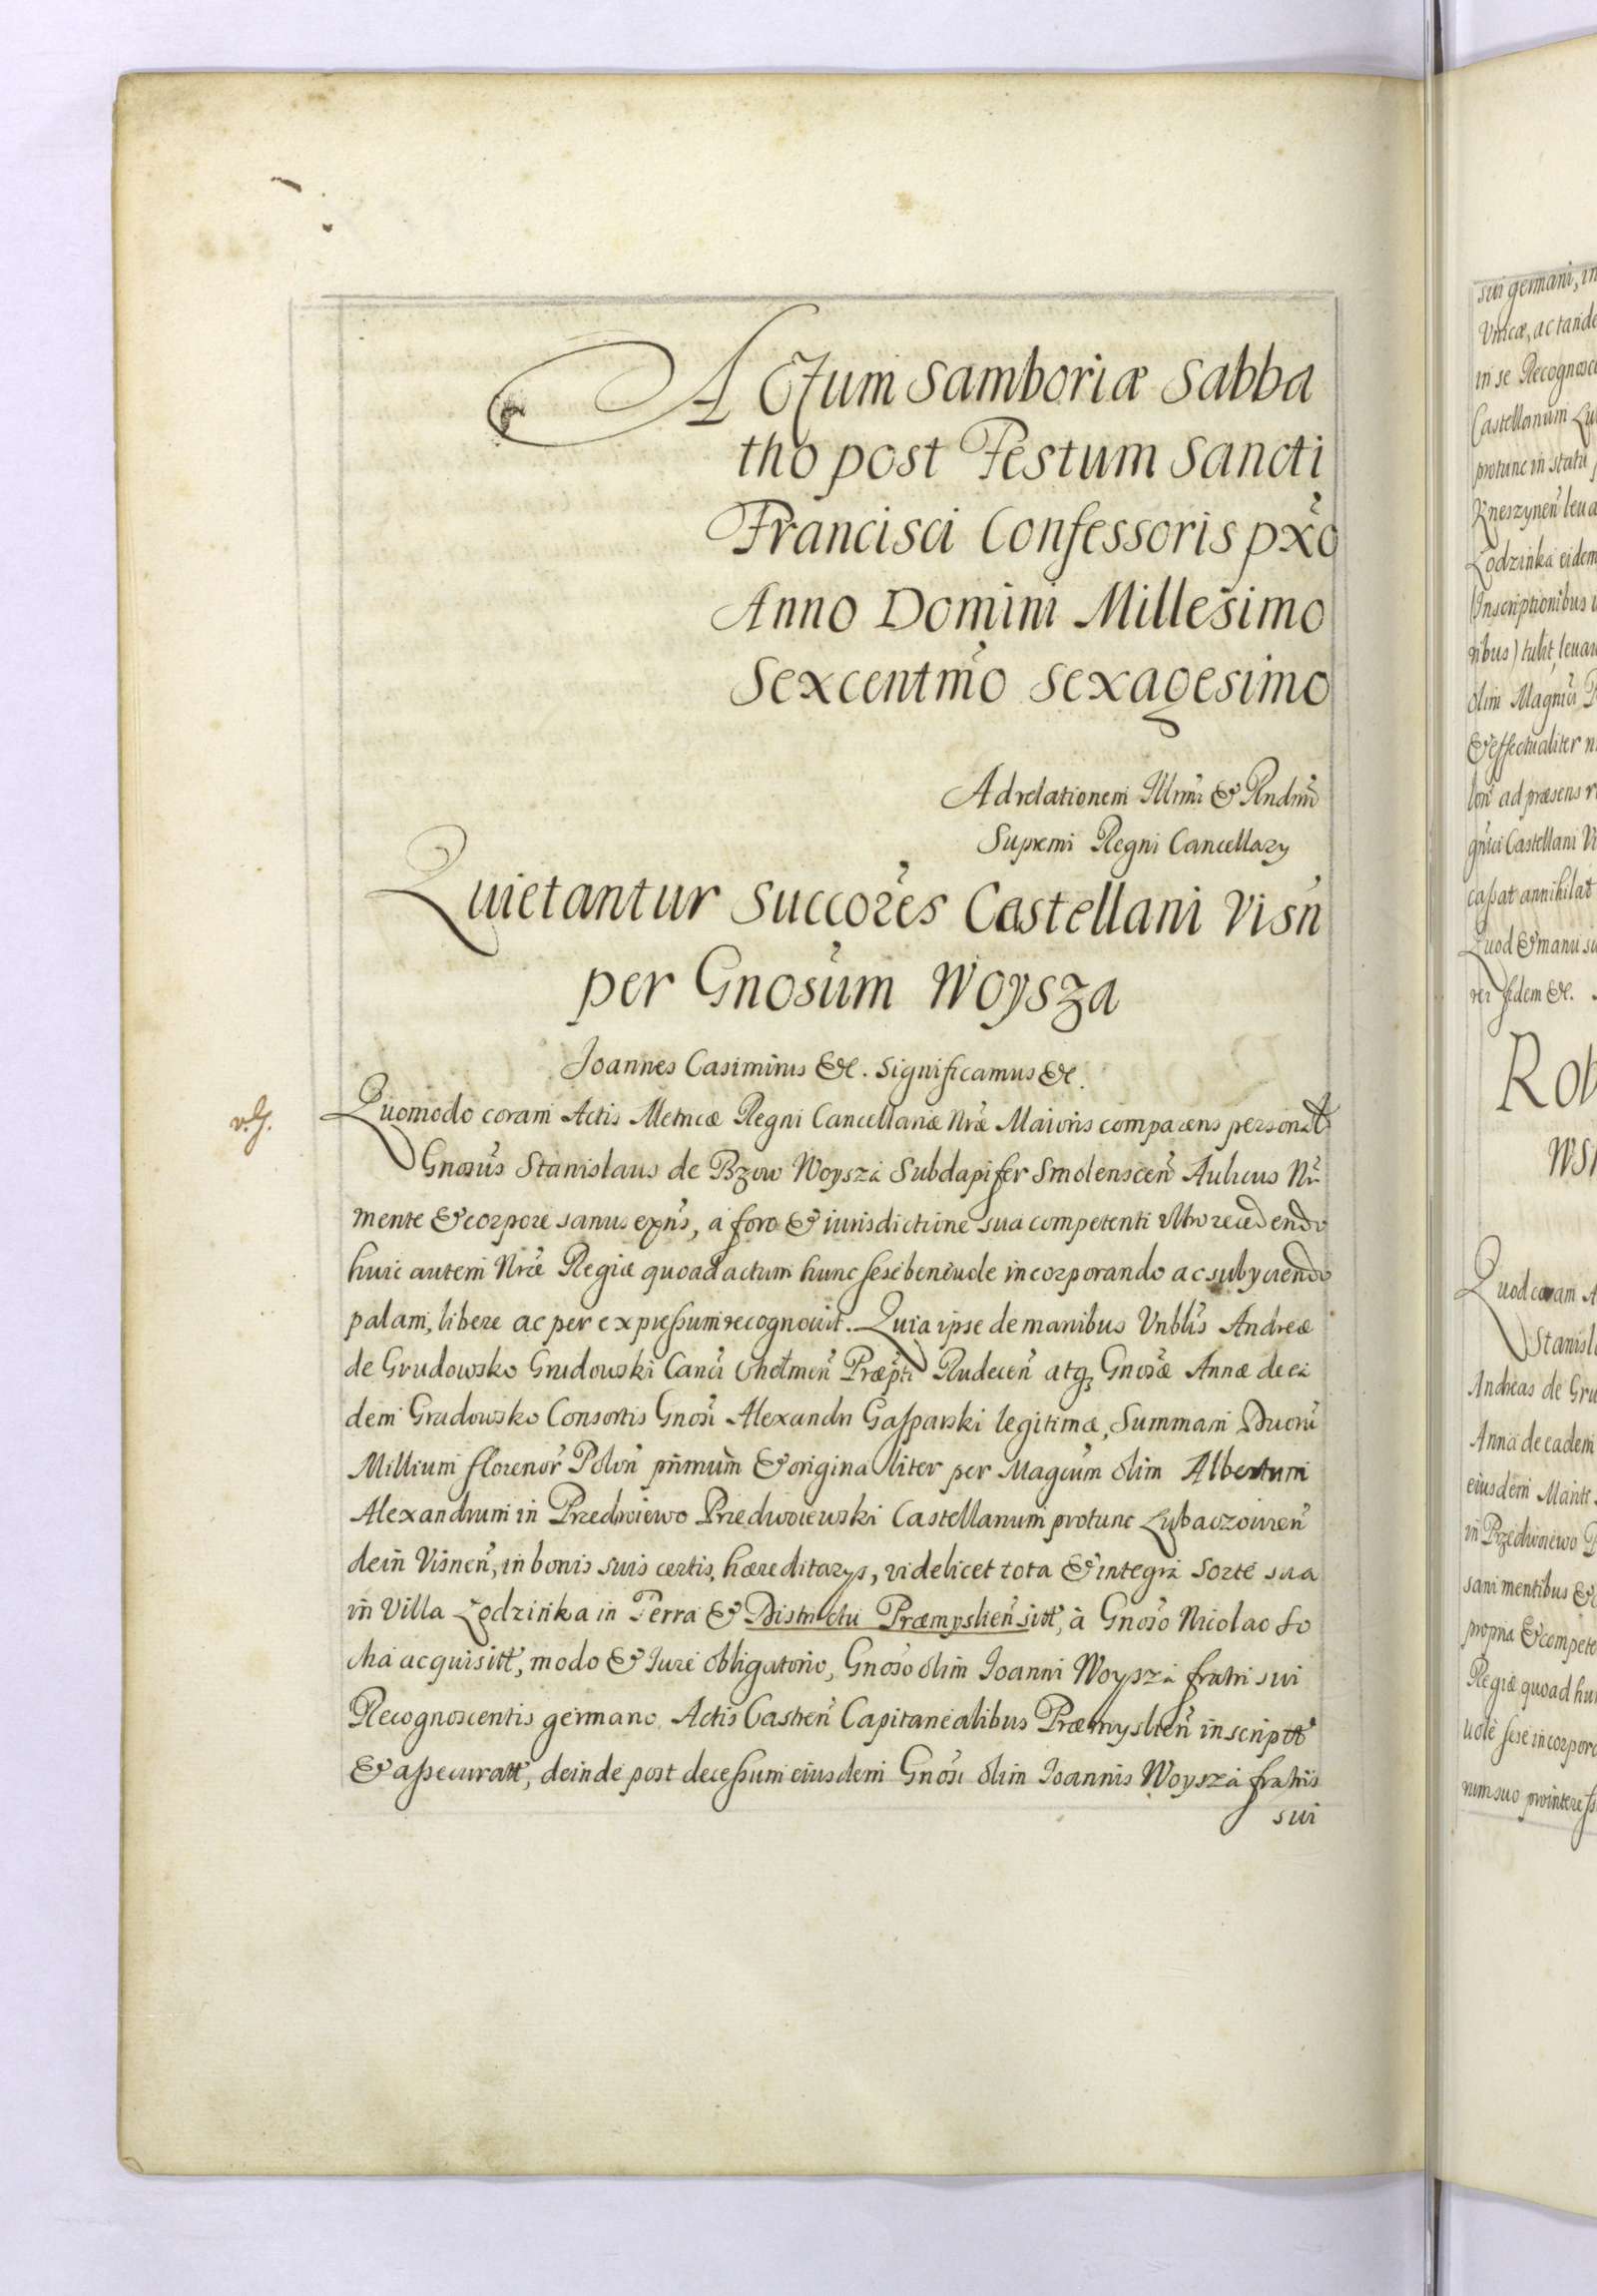 Actum Samboriæ Sabba
tho post Festum Sancti
Francisci Confessoris pxo
Anno Domini Millesimo
Sexcentmo sexagesimo
Ad relationem Illrmi & Rndmi
Supremi Regni Cancellary
Quietantur Succores Castellani Visn
per Gnosum Woysza
Joannes Casimirus &c. Significamus &c.
v. g.
Quomodo coram Actis Metricæ Regni Cancellariæ Nræ Maioris comparens personalt
Gnosus Stanislaus de Bzow Woysza Subdapifer Smolenscen Aulicus Nr
mente & corpore sanus exns, a foro & iurisdictione sua competenti ultro recedendo
huic autem Nræ Regiæ quoad actum hunc sese beneuole incorporando ac subyciendo
palam, libere ac per expressum recognouit. Quia ipse de manibus Vnblis Andreæ
de Grudowsko Grudowski Canci Chełmen Præpti Rudecen atq Gnosæ Annæ de ea
dem Gradowsko Consortis Gnosi Alexandri Gasparski legitimæ, Summam Duoru
Millium florenor Polon primum & originaliter per Magcum olim Albertum
Alexandrum in Przedwoiewo Przedwoiewski Castellanum protunc Lubaczouien
dein Visnen, in bonis suis certis, hæreditarys, videlicet tota & integra sorte sua
in Villa Łodzinka in Terra & Districtu Præmyslien sitt, à Gnoso Nicolao So
cha acquisitt, modo & Jure obligatorio, Gnoso olim Joanni Woysza fratri sui
Recognoscentis germano. Actis Castren Capitanealibus Præmyslien inscriptt
& assecuratt, deinde post decessum eiusdem Gnosi olim Joannis Woysza fratris
sui
sui germani, in
Vnicæ, ac tande
in se Recognosce
Castellanum Lu
protunc in statu
Kneszynen leua
Łodzinka eidem
Inscriptionibus
nibus) tulit, leua
olim Magnici P
& effectualiter
lon ad præsens
gnici Castellani Vi
cassat annihilat
Quod & manu su
rei fidem &c.
Rob
Quod coram A
Stanisla
Andreas de Gru
Anna de eadem
eiusdem Mariti
in Przedwoiewo P
sani mentibus &
propria & compete
Regiæ quoad hu
uole sese incorpora
num suo pro interess